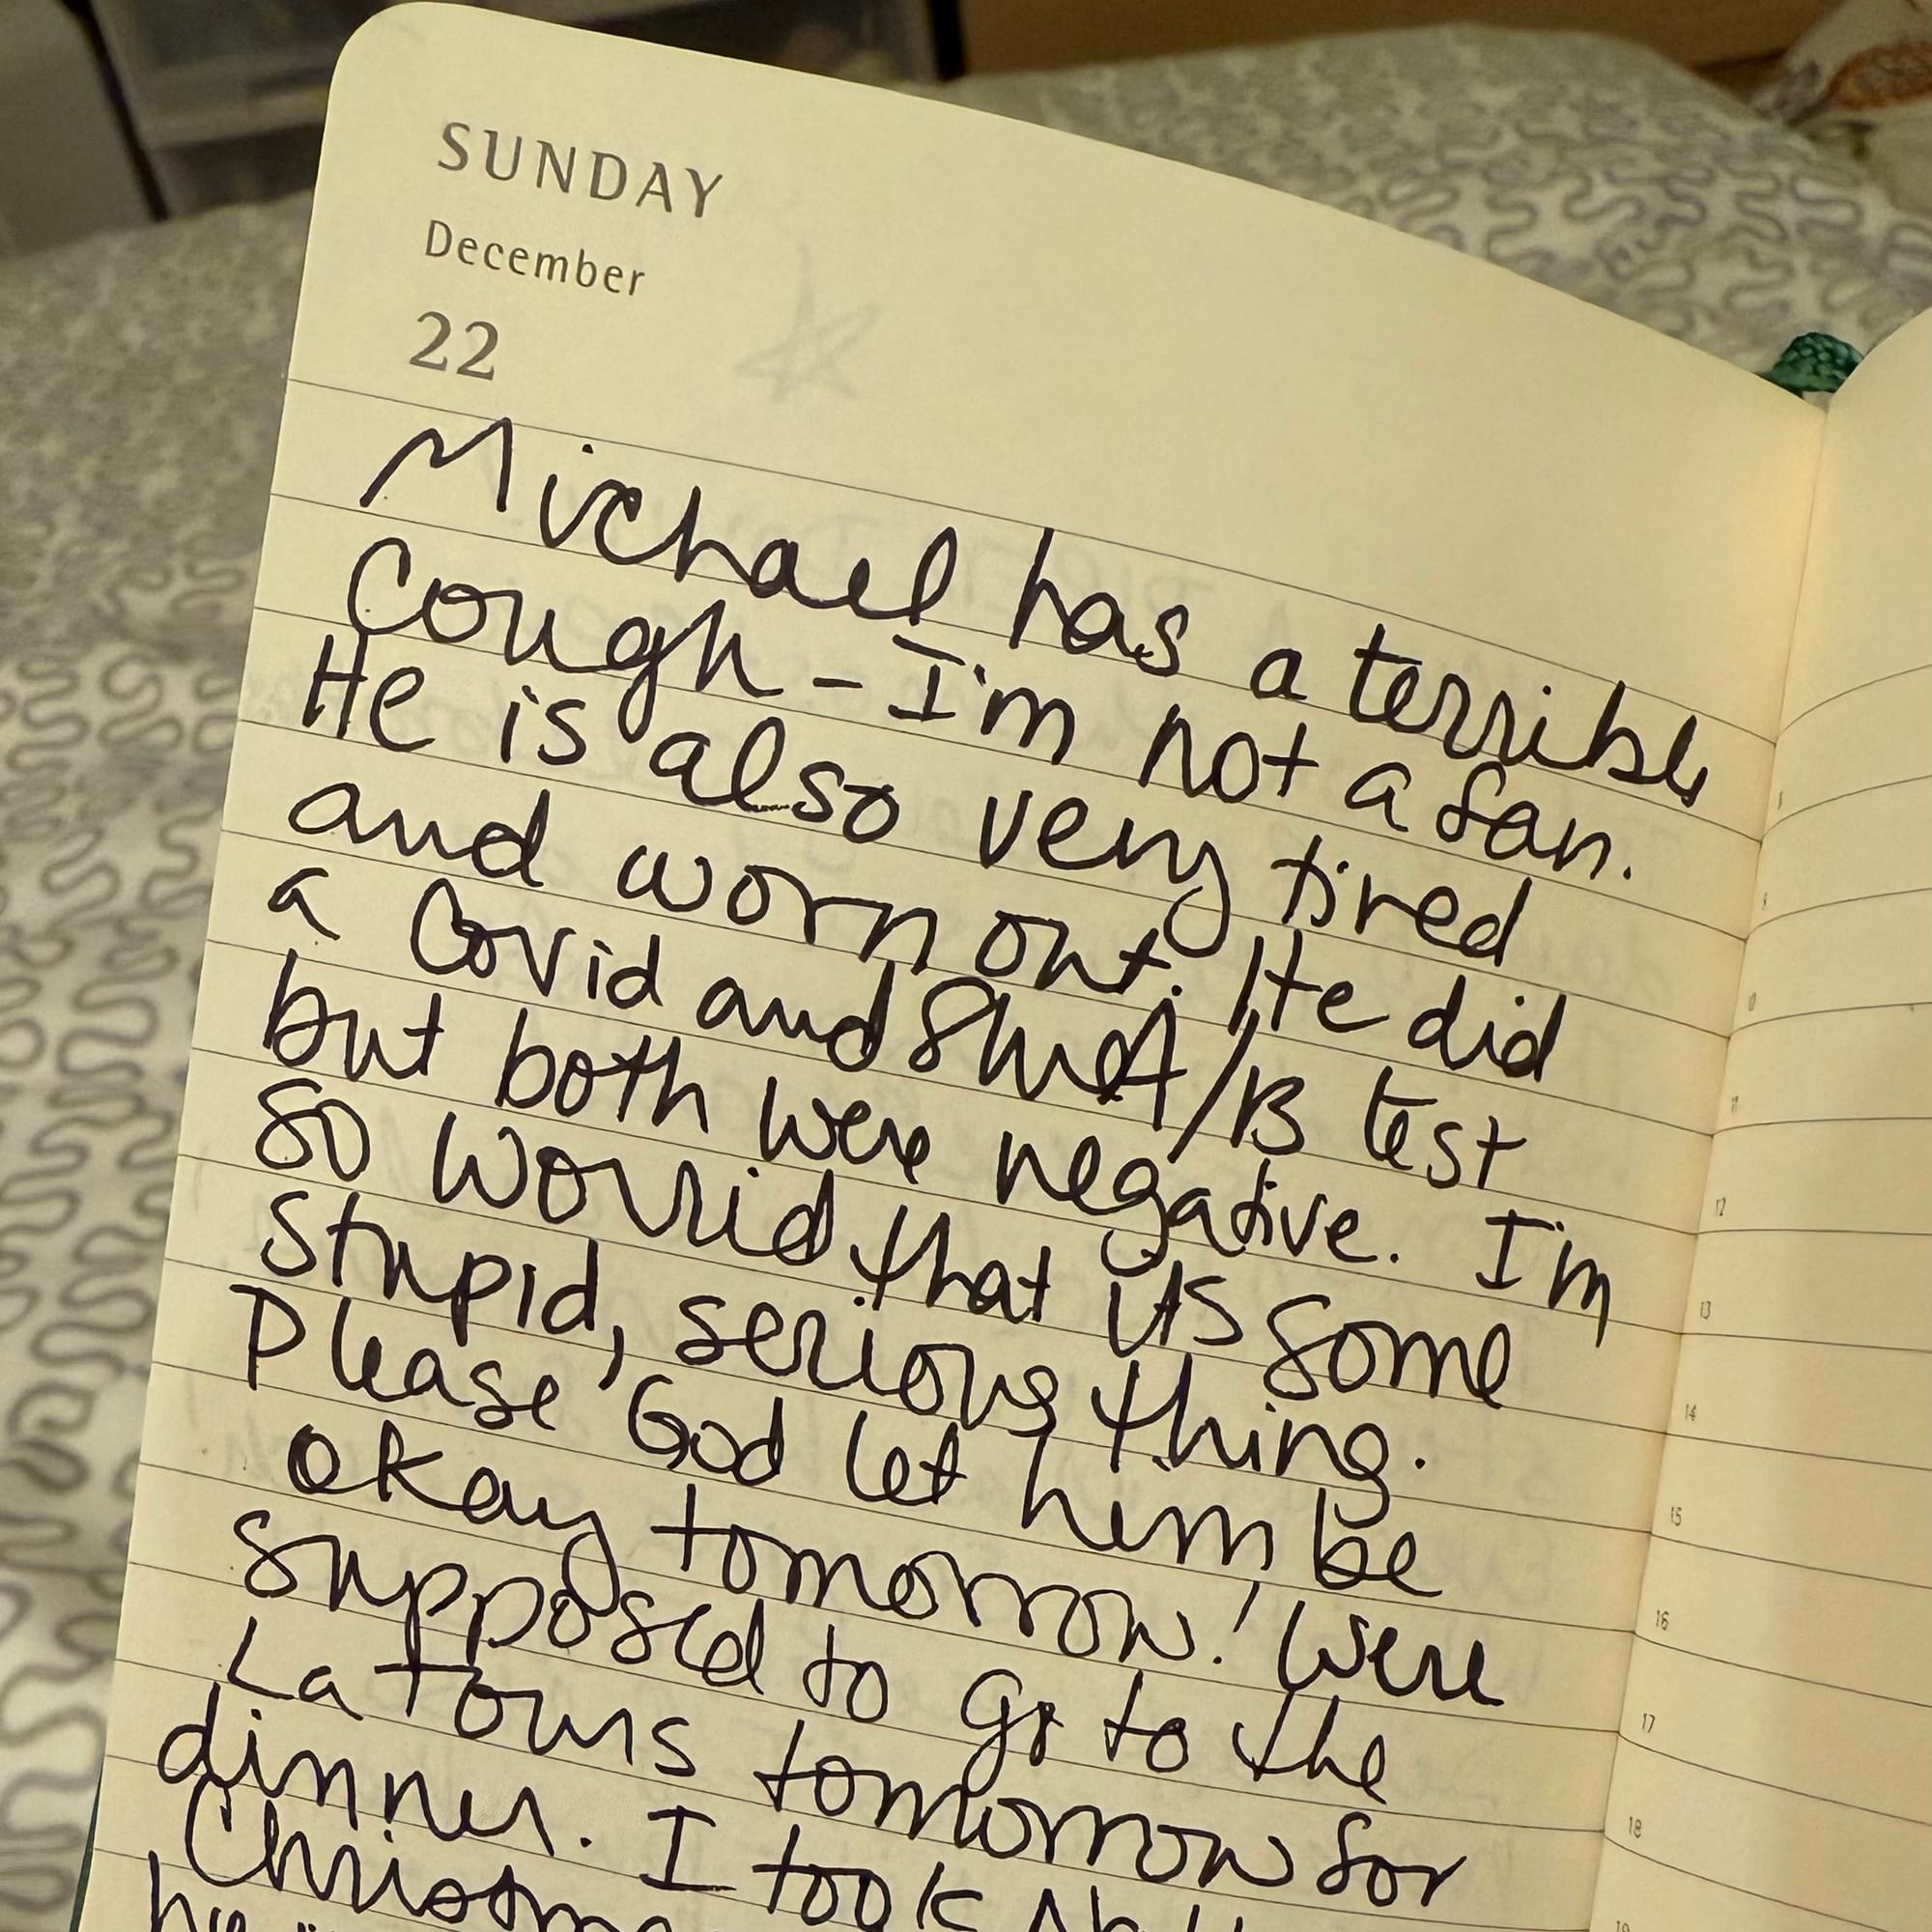 SUNDAY
December
22
Michael has a terrible
Cough - I'm not a fan.
He is also very tired
and worn out. He did
a Covid and flu A/B test
but both were negative. I'm
so worrid that its some
stupid, serious thing.
Please God let him be
okay tomorrow! Were
supposed to go to the
La Tours tomorrow for
dinner. I took
8
9
10
11
12
13
14
15
16
17
18
19